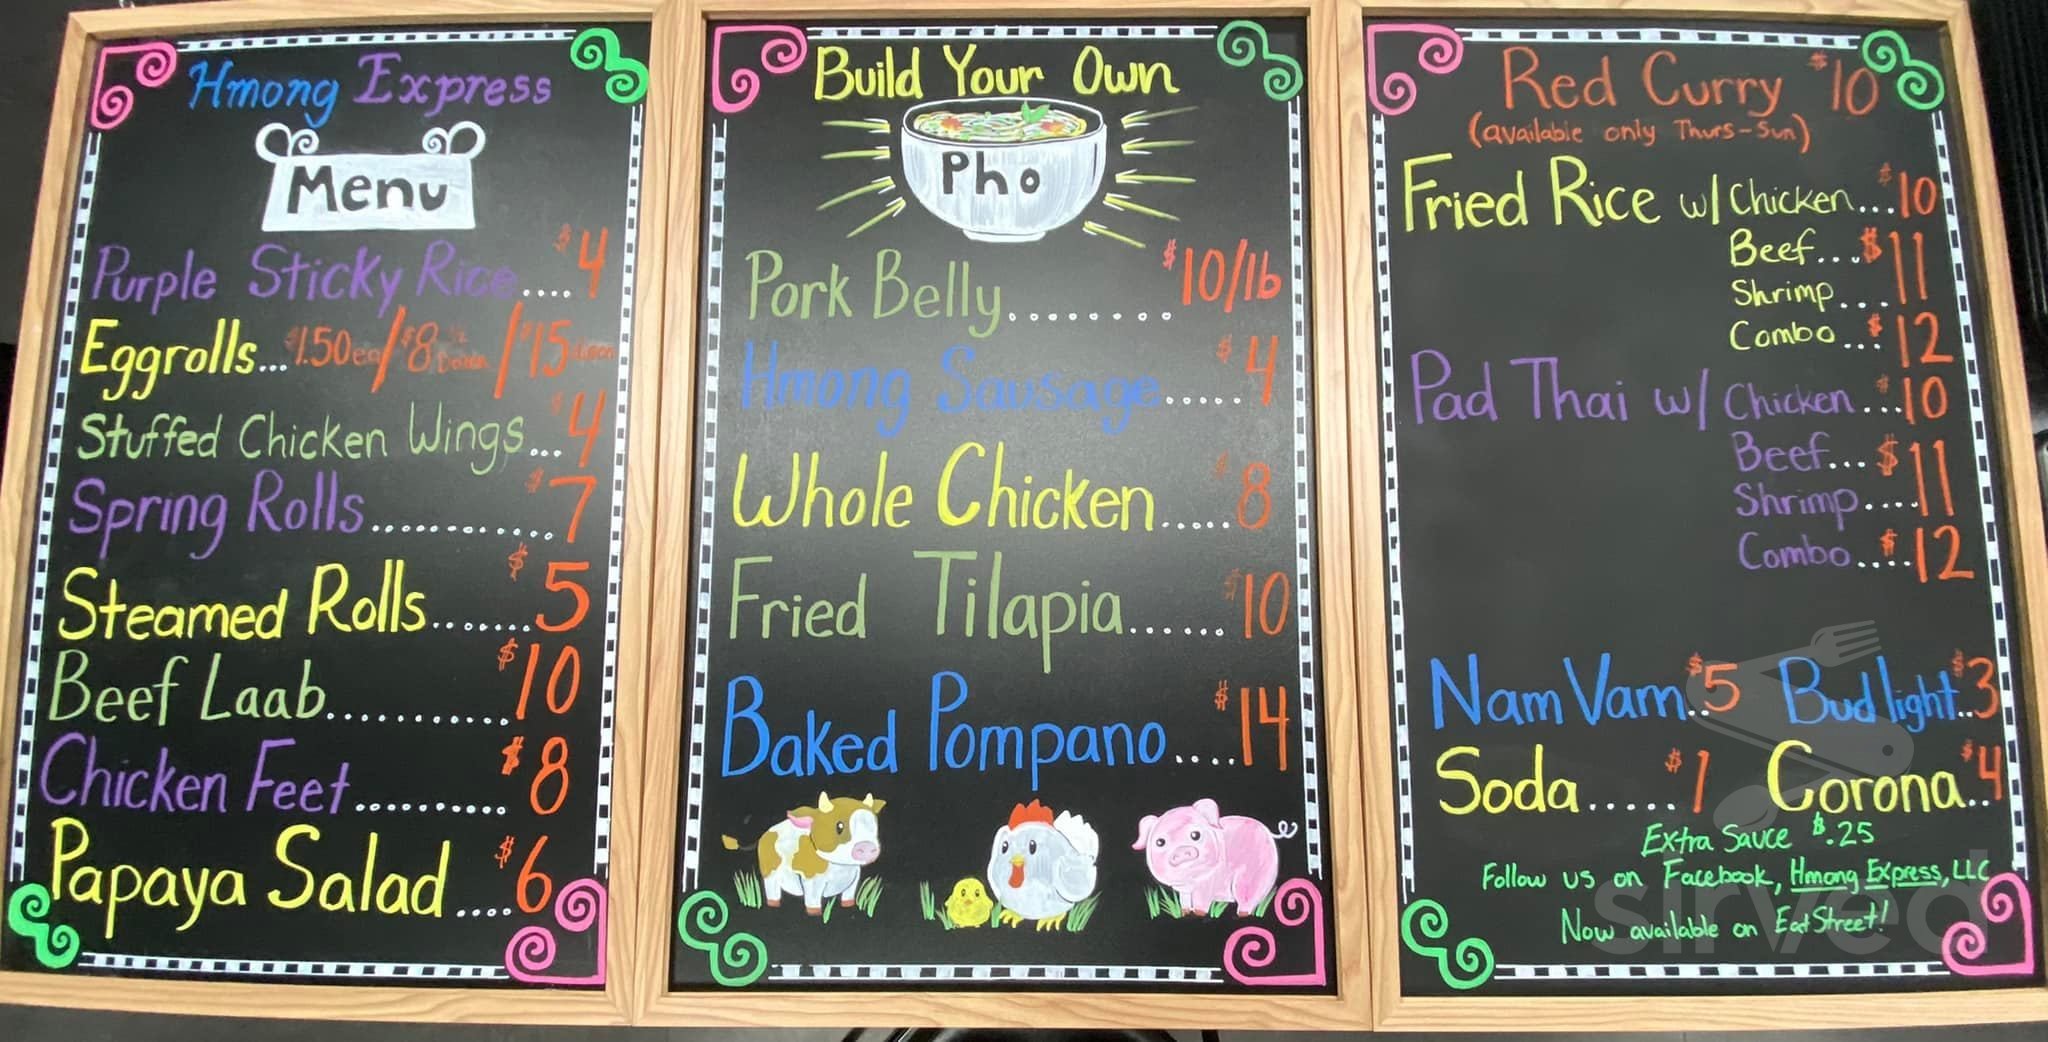 Hmong Express
Menu
Purple Sticky Rice.... $4
Eggrolls... $1.50 ea/ $8 1/2 Dozen / $15 dozen
Stuffed Chicken Wings... $4
Spring Rolls........... $7
Steamed Rolls....... $5
Beef Laab........... $10
Chicken Feet.......... $8
Papaya Salad.... $6
Build Your Own
Pho
Pork Belly........ $10/lb
Hmong Sausage..... $4
Whole Chicken..... $8
Fried Tilapia...... $10
Baked Pompano.... $14
Red Curry $10
(available only Thurs-Sun)
Fried Rice w/ Chicken... $10
Beef... $11
Shrimp... 11
Combo... $12
Pad Thai w/ Chicken... $10
Beef... $11
Shrimp.... 11
Combo.... $12
Nam Vam.. $5 Bud light.. $3
Soda..... $1 Corona.. $4
Extra Sauce $.25
Follow us on Facebook, Hmong Express, LLC
Now available on EatStreet!
sirved